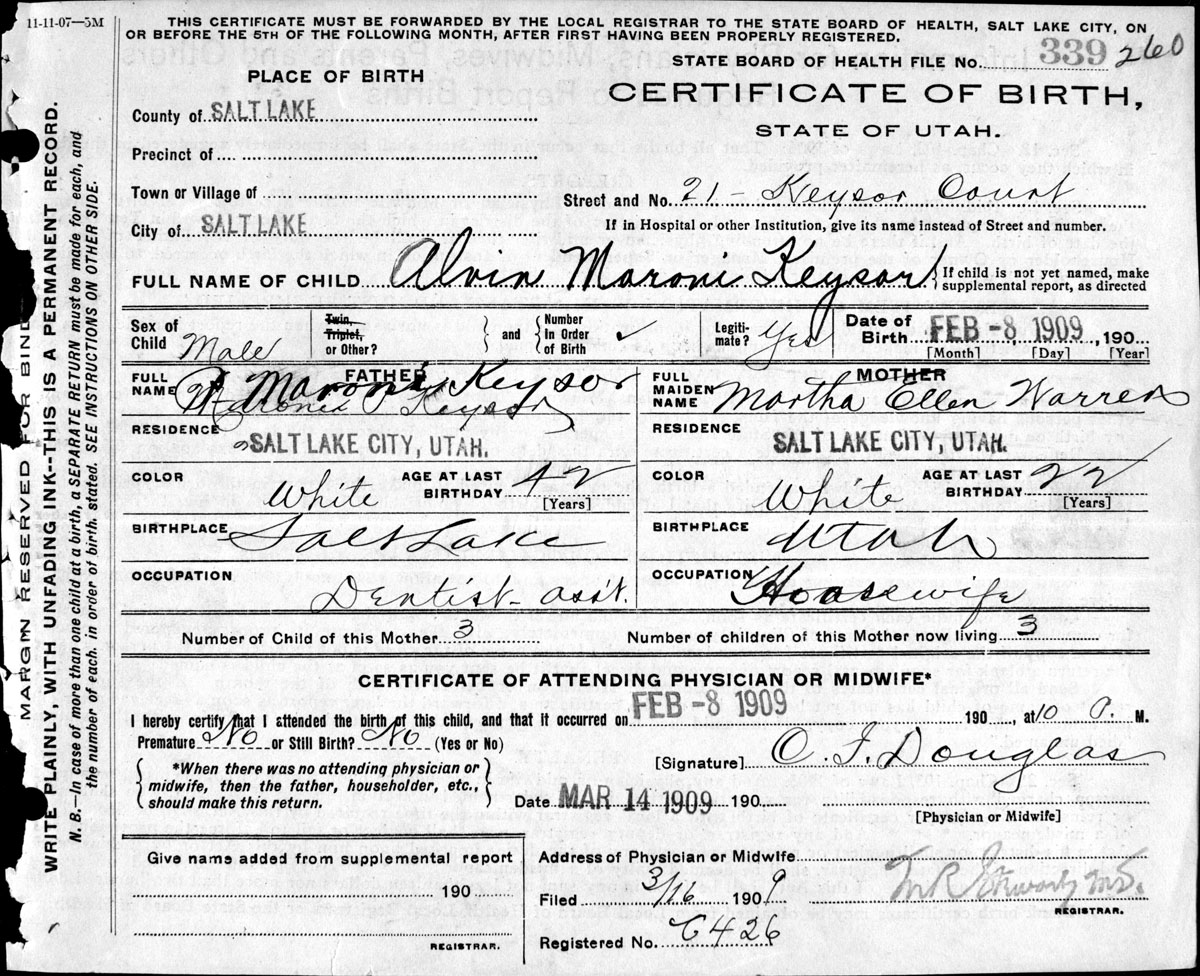 11-11-07—5M
THIS CERTIFICATE MUST BE FORWARDED BY THE LOCAL REGISTRAR TO THE STATE BOARD OF HEALTH, SALT LAKE CITY, ON
OR BEFORE THE 5TH OF THE FOLLOWING MONTH, AFTER FIRST HAVING BEEN PROPERLY REGISTERED.
MARGIN RESERVED FOR BIND
WRITE PLAINLY, WITH UNFADING INK--THIS IS A PERMANENT RECORD.
N. B.—In case of more than one child at a birth, a SEPARATE RETURN must be made for each, and
the number of each. in order of birth. stated. SEE INSTRUCTIONS ON OTHER SIDE.
STATE BOARD OF HEALTH FILE No. 339 260
CERTIFICATE OF BIRTH,
STATE OF UTAH.
PLACE OF BIRTH
County of SALT LAKE
Precinct of
Town or Village of
City of SALT LAKE
Street and No. 21 - Keysor Court
If in Hospital or other Institution, give its name instead of Street and number.
FULL NAME OF CHILD Alvin Maroni Keysor
If child is not yet named, make
supplemental report, as directed
Sex of Child Male
Twin, Triplet, or Other?
and
Number In Order of Birth
Legiti-mate? Yes
Date of Birth FEB -8 1909, 190
[Month] [Day] [Year]
FATHER
FULL NAME Maroni Keysor
Keysor
RESIDENCE
SALT LAKE CITY, UTAH.
COLOR White
AGE AT LAST BIRTHDAY 42
[Years]
BIRTHPLACE Salt Lake
OCCUPATION Dentist - ass't.
MOTHER
FULL MAIDEN NAME Martha Ellen Warren
RESIDENCE
SALT LAKE CITY, UTAH.
COLOR White
AGE AT LAST BIRTHDAY 22
[Years]
BIRTHPLACE Utah
OCCUPATION Housewife
Number of Child of this Mother 3
Number of children of this Mother now living 3
CERTIFICATE OF ATTENDING PHYSICIAN OR MIDWIFE*
I hereby certify that I attended the birth of this child, and that it occurred on FEB -8 1909 190, at 10 P. M.
Premature No or Still Birth? No (Yes or No)
*When there was no attending physician or
midwife, then the father, householder, etc.,
should make this return.
[Signature] Douglas
Date MAR 14 1909 190
[Physician or Midwife]
Give name added from supplemental report
190
REGISTRAR.
Address of Physician or Midwife
Filed 3/16 1909
REGISTRAR.
Registered No. 426